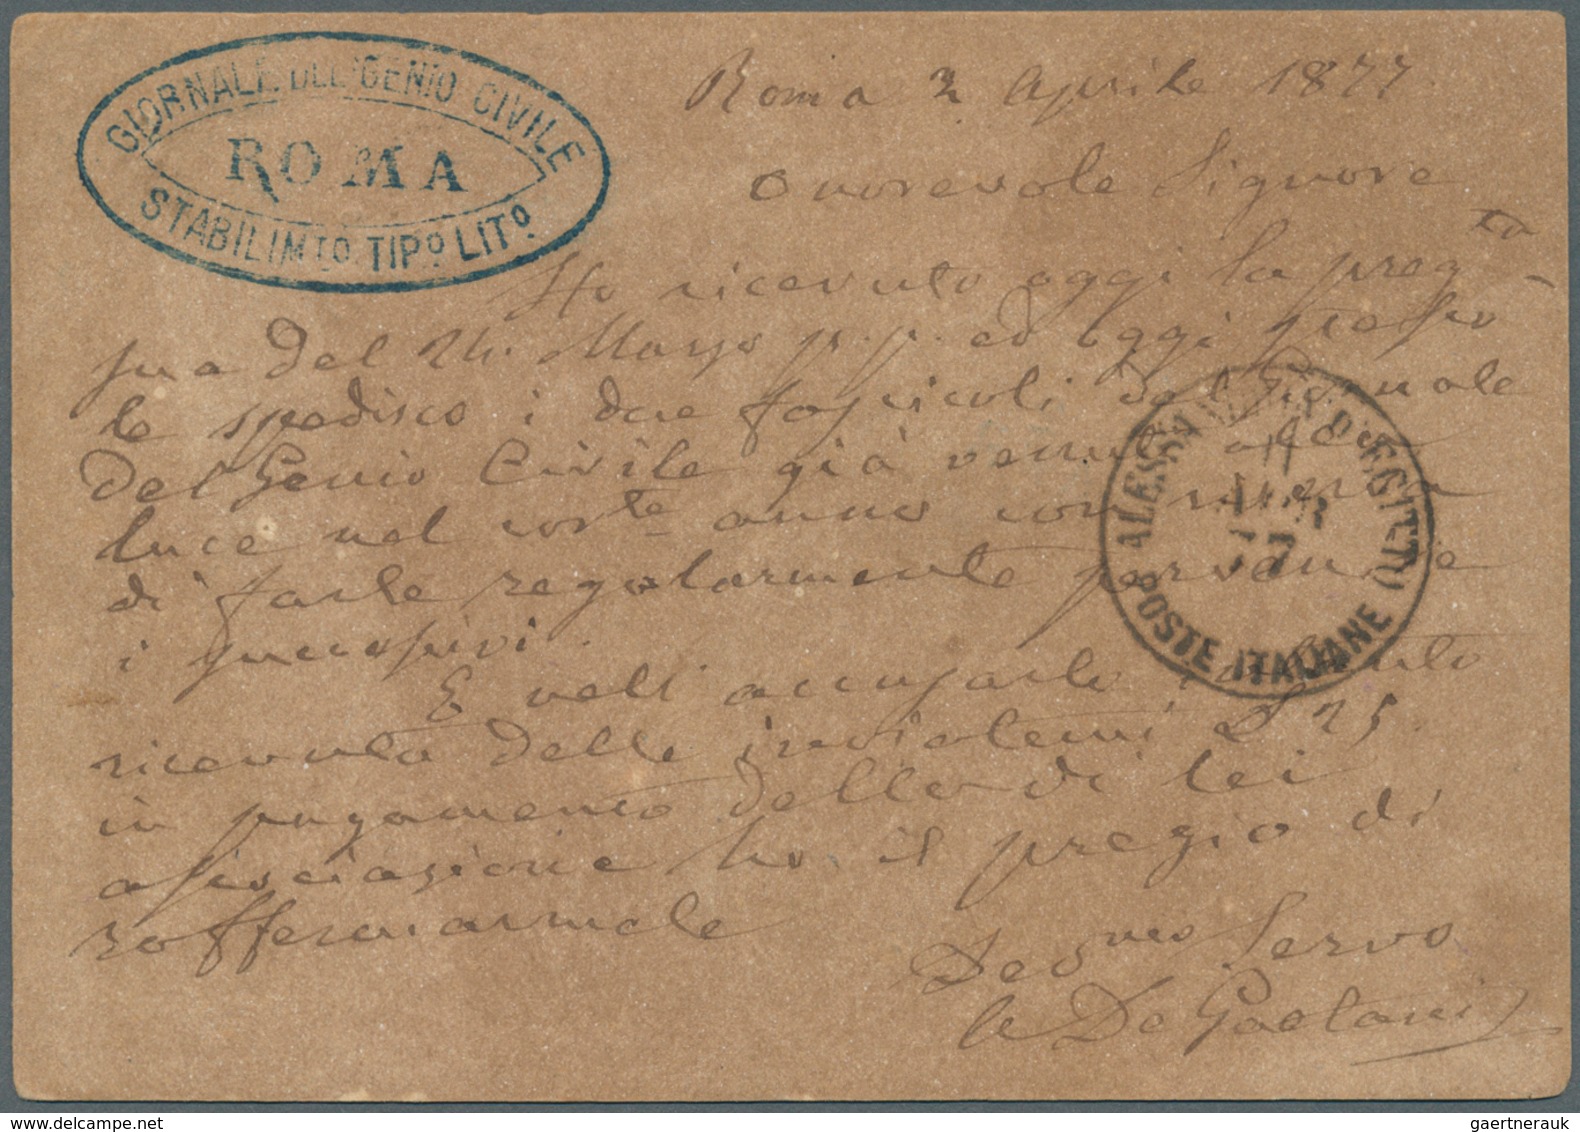 GIORNALE DEL GENIO CIVILE
ROMA
STABILIMTO TIPº LITº
Roma 2 Aprile 1877
Onorevole Signore
Ho ricevuto oggi la pregta
sua del 24. Marzo p.p. ed oggi stesso
le spedisco i due fascicoli del Giornale
del Genio Civile già venuti alla
luce nel corrte anno con riserva
di farle regolarmente pervenire
i successivi.
E nell' accusarle
ricevuta delle inviatemi L 25.
in pagamento della di lei
associazione ho il pregio di
raffermarmele
Devmo Servo
De Gaetani
ALESSANDRIA D'EGITTO
11
APR
77
POSTE ITALIANE
gaertnerauk